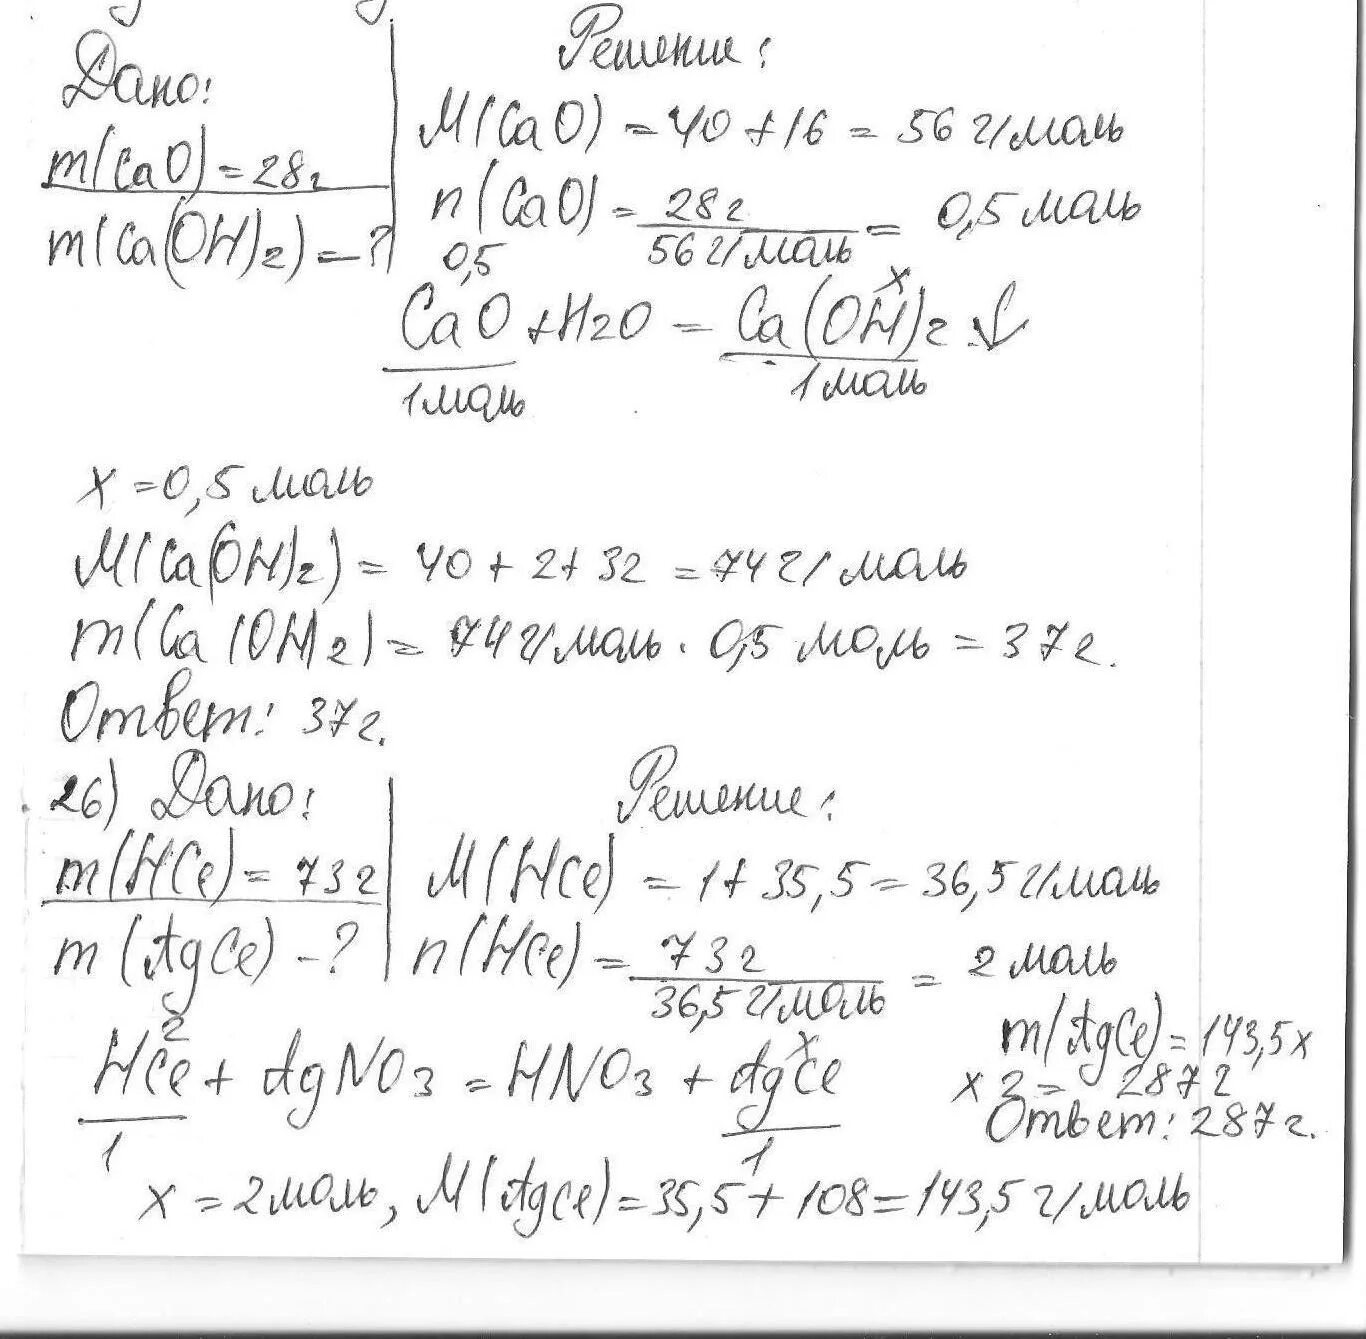 Дано:
m(CaO) = 28г
m(Ca(OH)2) - ?
Решение:
M(CaO) = 40 + 16 = 56 г/моль
n(CaO) = 28г / 56 г/моль = 0,5 моль
0,5 x
CaO + H2O = Ca(OH)2 ↓
1 моль 1 моль
x = 0,5 моль
M(Ca(OH)2) = 40 + 2 + 32 = 74 г/моль
m(Ca(OH)2) = 74 г/моль · 0,5 моль = 37г.
Ответ: 37г.
26) Дано:
m(HCl) = 73г
m(AgCl) - ?
Решение:
M(HCl) = 1 + 35,5 = 36,5 г/моль
n(HCl) = 73г / 36,5 г/моль = 2 моль
2 x
HCl + AgNO3 = HNO3 + AgCl
1 1
x = 2 моль, M(AgCl) = 35,5 + 108 = 143,5 г/моль
m(AgCl) = 143,5 x
x 2 = 287г
Ответ: 287г.